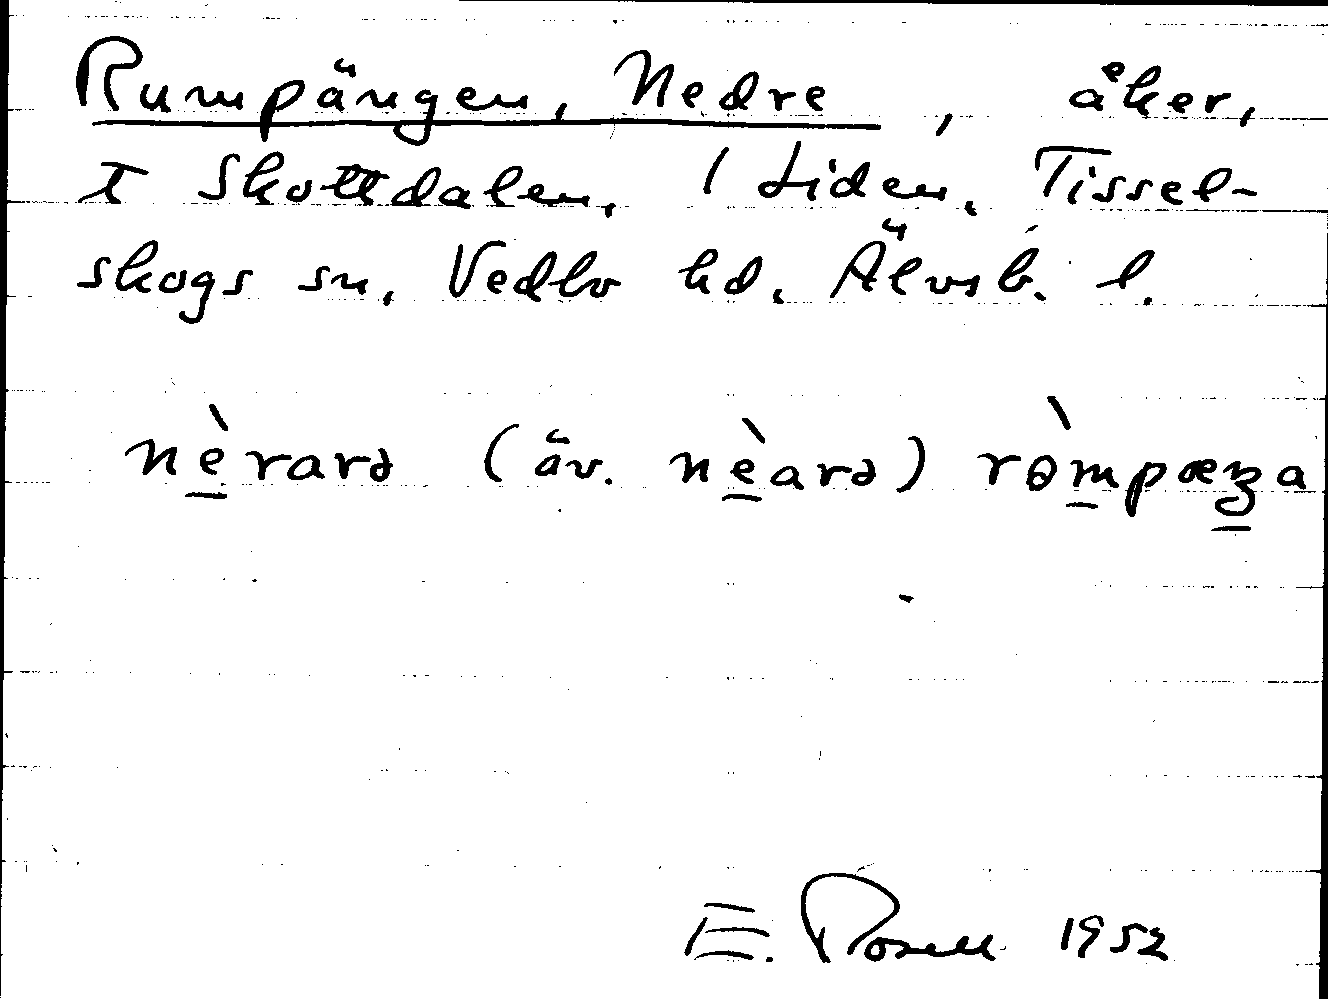 Rumpängen, Nedre, åker,
t Skottdalen, 1 Liden, Tissel-
skogs sn, Vedbo hd, Älvsb. l.
nèrarə (äv. nèarə) ròmpæŋa
E. Rosell 1952